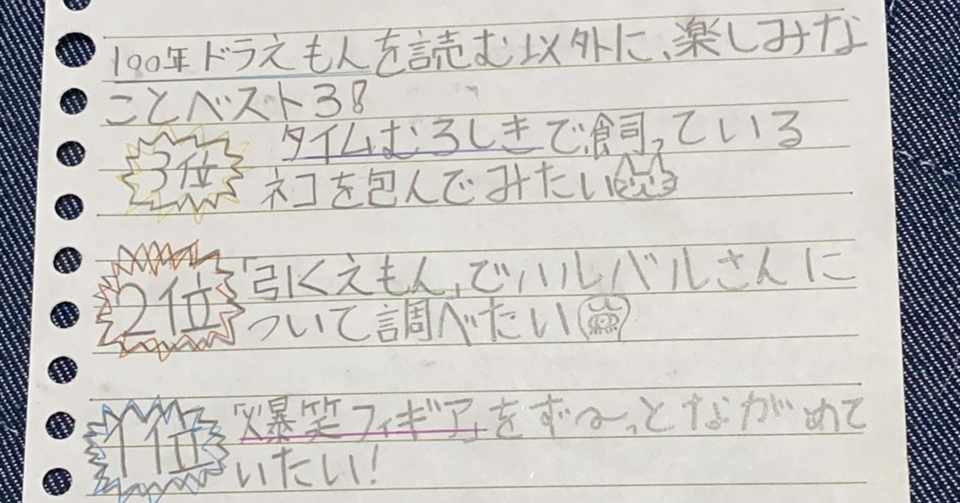 100年ドラえもんを読む以外に、楽しみな
ことベスト3!
3位 タイムむろしきで飼っている
ネコを包んでみたい
2位 「引くえもん」でハルバルさんに
ついて調べたい
1位 「爆笑フィギア」をず〜っとながめて
いたい!